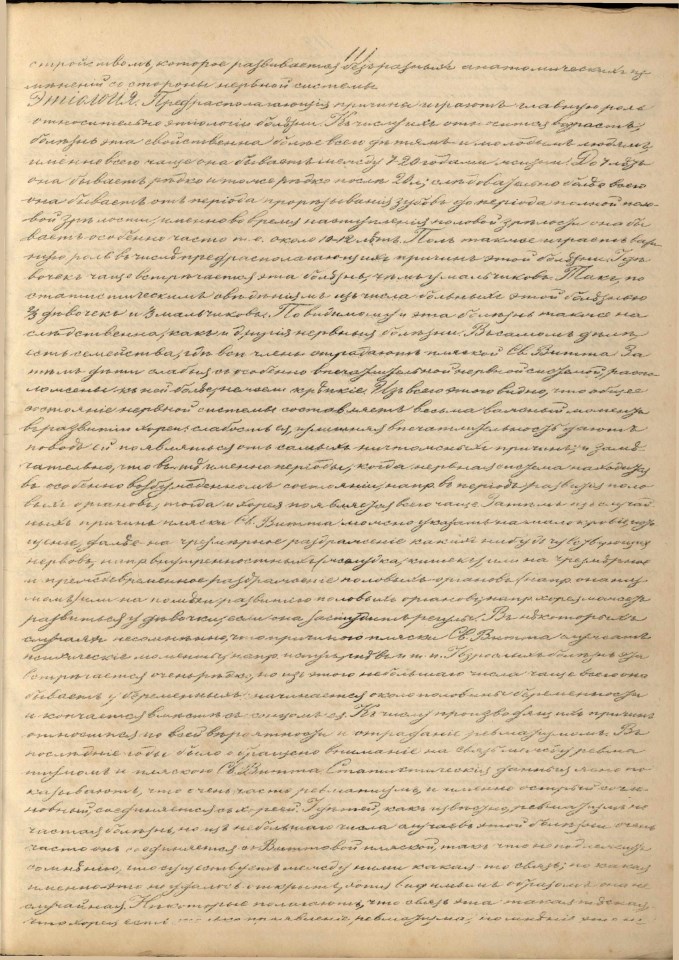 111
стройствомъ, которое развивается безъ разныхъ анатомическихъ из-
мѣненій со стороны нервной системы.
Этіологія. Предрасполагающія причины играютъ главную роль
относительно этіологіи болѣзни. Къ числу ихъ относится возрастъ;
болѣзнь эта свойственна болѣе всего дѣтямъ и молодымъ людямъ,
именно всего чаще она бываетъ между 7-20 годами жизни. До 7 лѣтъ
она бываетъ рѣдко и тоже рѣдко послѣ 20 л; слѣдовательно чаще всего
она бываетъ отъ періода прорѣзыванія зубовъ до періода полной поло-
вой зрѣлости, именно во время наступленія половой зрѣлости она бы-
ваетъ особенно часто т. е. около лѣтъ. Полъ также играетъ важ-
ную роль въ числѣ предрасполагающихъ причинъ этой болѣзни. У дѣ-
вочекъ чаще встрѣчается эта болѣзнь, чѣмъ у мальчиковъ. Такъ, по
статистическимъ свѣденіямъ изъ числа больныхъ этой болѣзнью
2/3 дѣвочекъ и 1/3 мальчиковъ. Повидимому и эта болѣзнь также на-
слѣдственна, какъ и другія нервныя болѣзни. Въ самомъ дѣлѣ
есть семейства, гдѣ всѣ члены страдаютъ пляской Св. Витта. За-
тѣмъ дѣти слабыя съ особенно впечатлительной нервной системой, распо-
ложены къ ной болѣе, нежели крѣпкіе. Изъ всего этого видно, что общее
состояніе нервной системы составляетъ весьма важный моментъ
въ развитіи хореи: слабость ея, излишняя впечатлительность даютъ
поводъ ей появляться отъ самыхъ ничтожныхъ причинъ; и замѣ-
чательно, что въ тѣ именно періоды, когда нервная система находится
въ особенно возбужденномъ состояніи, напр. въ періодъ развитія поло-
выхъ органовъ, тогда и хорея появляется всего чаще. Затѣмъ изъ случай-
ныхъ причинъ пляски Св. Витта можно указать на малокровіе,
далѣе на чрезмѣрное раздраженіе какихъ нибудь чувствующихъ
нервовъ, напр. внутренностныхъ (желудка, кишекъ) или на чрезмѣрное
и преждевременное раздраженіе половыхъ органовъ (напр.
или на развитію половыхъ органовъ; напр. хорея можетъ
развиться у дѣвочки, если она Въ нѣкоторыхъ
случаяхъ несомнѣнно, что причиною пляски Св. Витта служатъ
психическіе моменты, напр. испугъ, гнѣвъ и т. п. У взрослыхъ болѣзнь эта
встрѣчается очень рѣдко, но изъ этого небольшаго числа чаще всего она
бываетъ у беременныхъ: начинается около половины беременности
и кончается вмѣстѣ съ Къ числу производящихъ причинъ
относится по всей вѣроятности и страданіе ревматизмомъ. Въ
послѣдніе годы было обращено вниманіе на связь между ревма-
тизмомъ и пляскою Св. Витта. Статистическія данныя ясно по-
казываютъ, что очень часто ревматизмъ, и именно острый сочле-
новный, соединяется съ хореей. У дѣтей, какъ извѣстно, ревматизмъ не
частая болѣзнь, но изъ небольшаго числа случаевъ этой болѣзни очень
часто онъ соединяется съ Виттовой пляской, такъ что не подлежитъ
сомнѣнію, что существуетъ между ними какая-то связь; но какая
именно это не удалось открыть, хотя видимымъ образомъ она не
случайная. Нѣкоторые полагаютъ, что связь эта такая
что хорея есть только проявленіе ревматизма, но мнѣніе это не